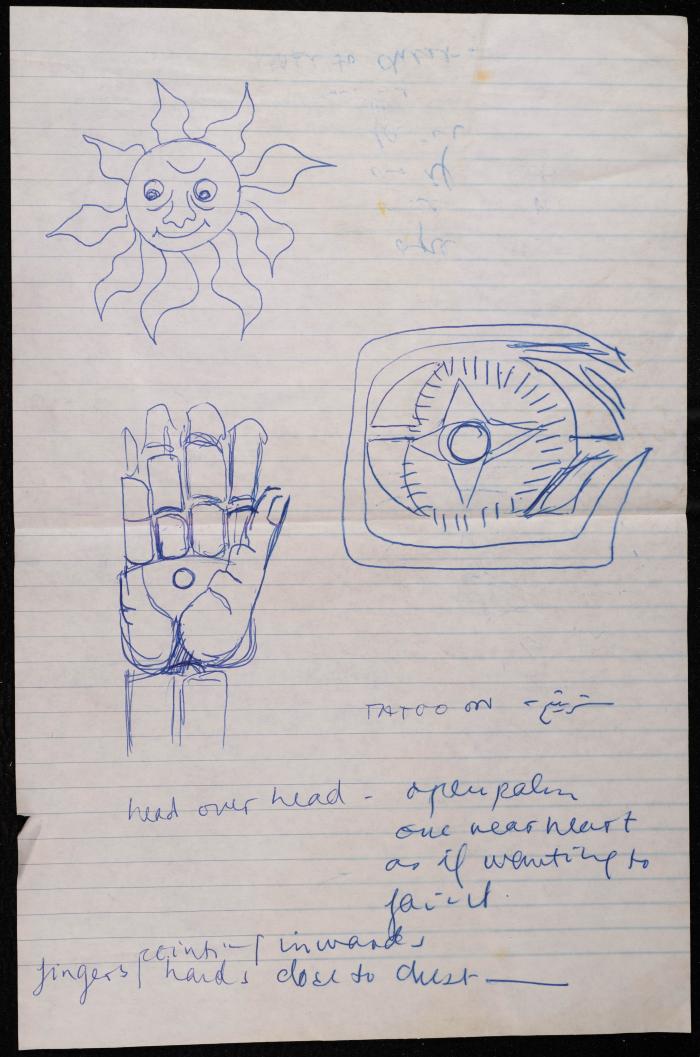 TATOO ON
head over head - open palm
one near heart
as if wanting to
faint.
pointing inwards
fingers / hands close to chest